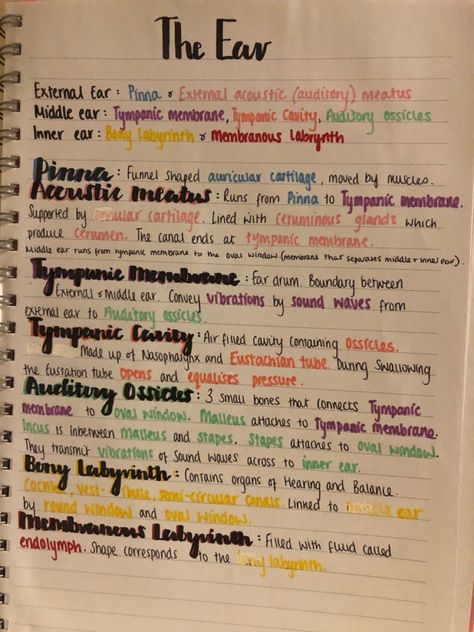 The Ear
External Ear : Pinna & External acoustic (auditory) meatus
Middle ear : Tympanic membrane, Tympanic Cavity, Auditory ossicles
Inner ear : Bony Labyrinth & membranous Labrynth
Pinna : Funnel shaped auricular cartilage, moved by muscles.
Acoustic meatus : Runs from Pinna to Tympanic membrane.
Supported by annular cartilage. Lined with ceruminous glands which
produce cerumen. The canal ends at tympanic membrane.
Middle ear runs from tympanic membrane to the oval window (membrane that separates middle & inner ear).
Tympanic Membrane : Ear drum. Boundary between
External & middle ear. Convey vibrations by sound waves from
external ear to Auditory ossicles.
Tympanic Cavity : Air filled cavity containing ossicles.
Made up of Nasophairynx and Eustachian tube. During swallowing
the eustation tube opens and equalises pressure.
Auditory Ossicles : 3 small bones that connects Tympanic
membrane to oval window. Malleus attaches to Tympanic membrane.
Incus is inbetween malleus and stapes. Stapes attaches to oval window.
They transmit vibrations of sound waves across to inner ear.
Bony Labyrinth : Contains organs of Hearing and Balance.
semi-circular canals. Linked to ear
by round window and oval window.
Membranous Labyrinth : Filled with fluid called
endolymph. Shape corresponds to the bony labyrinth.